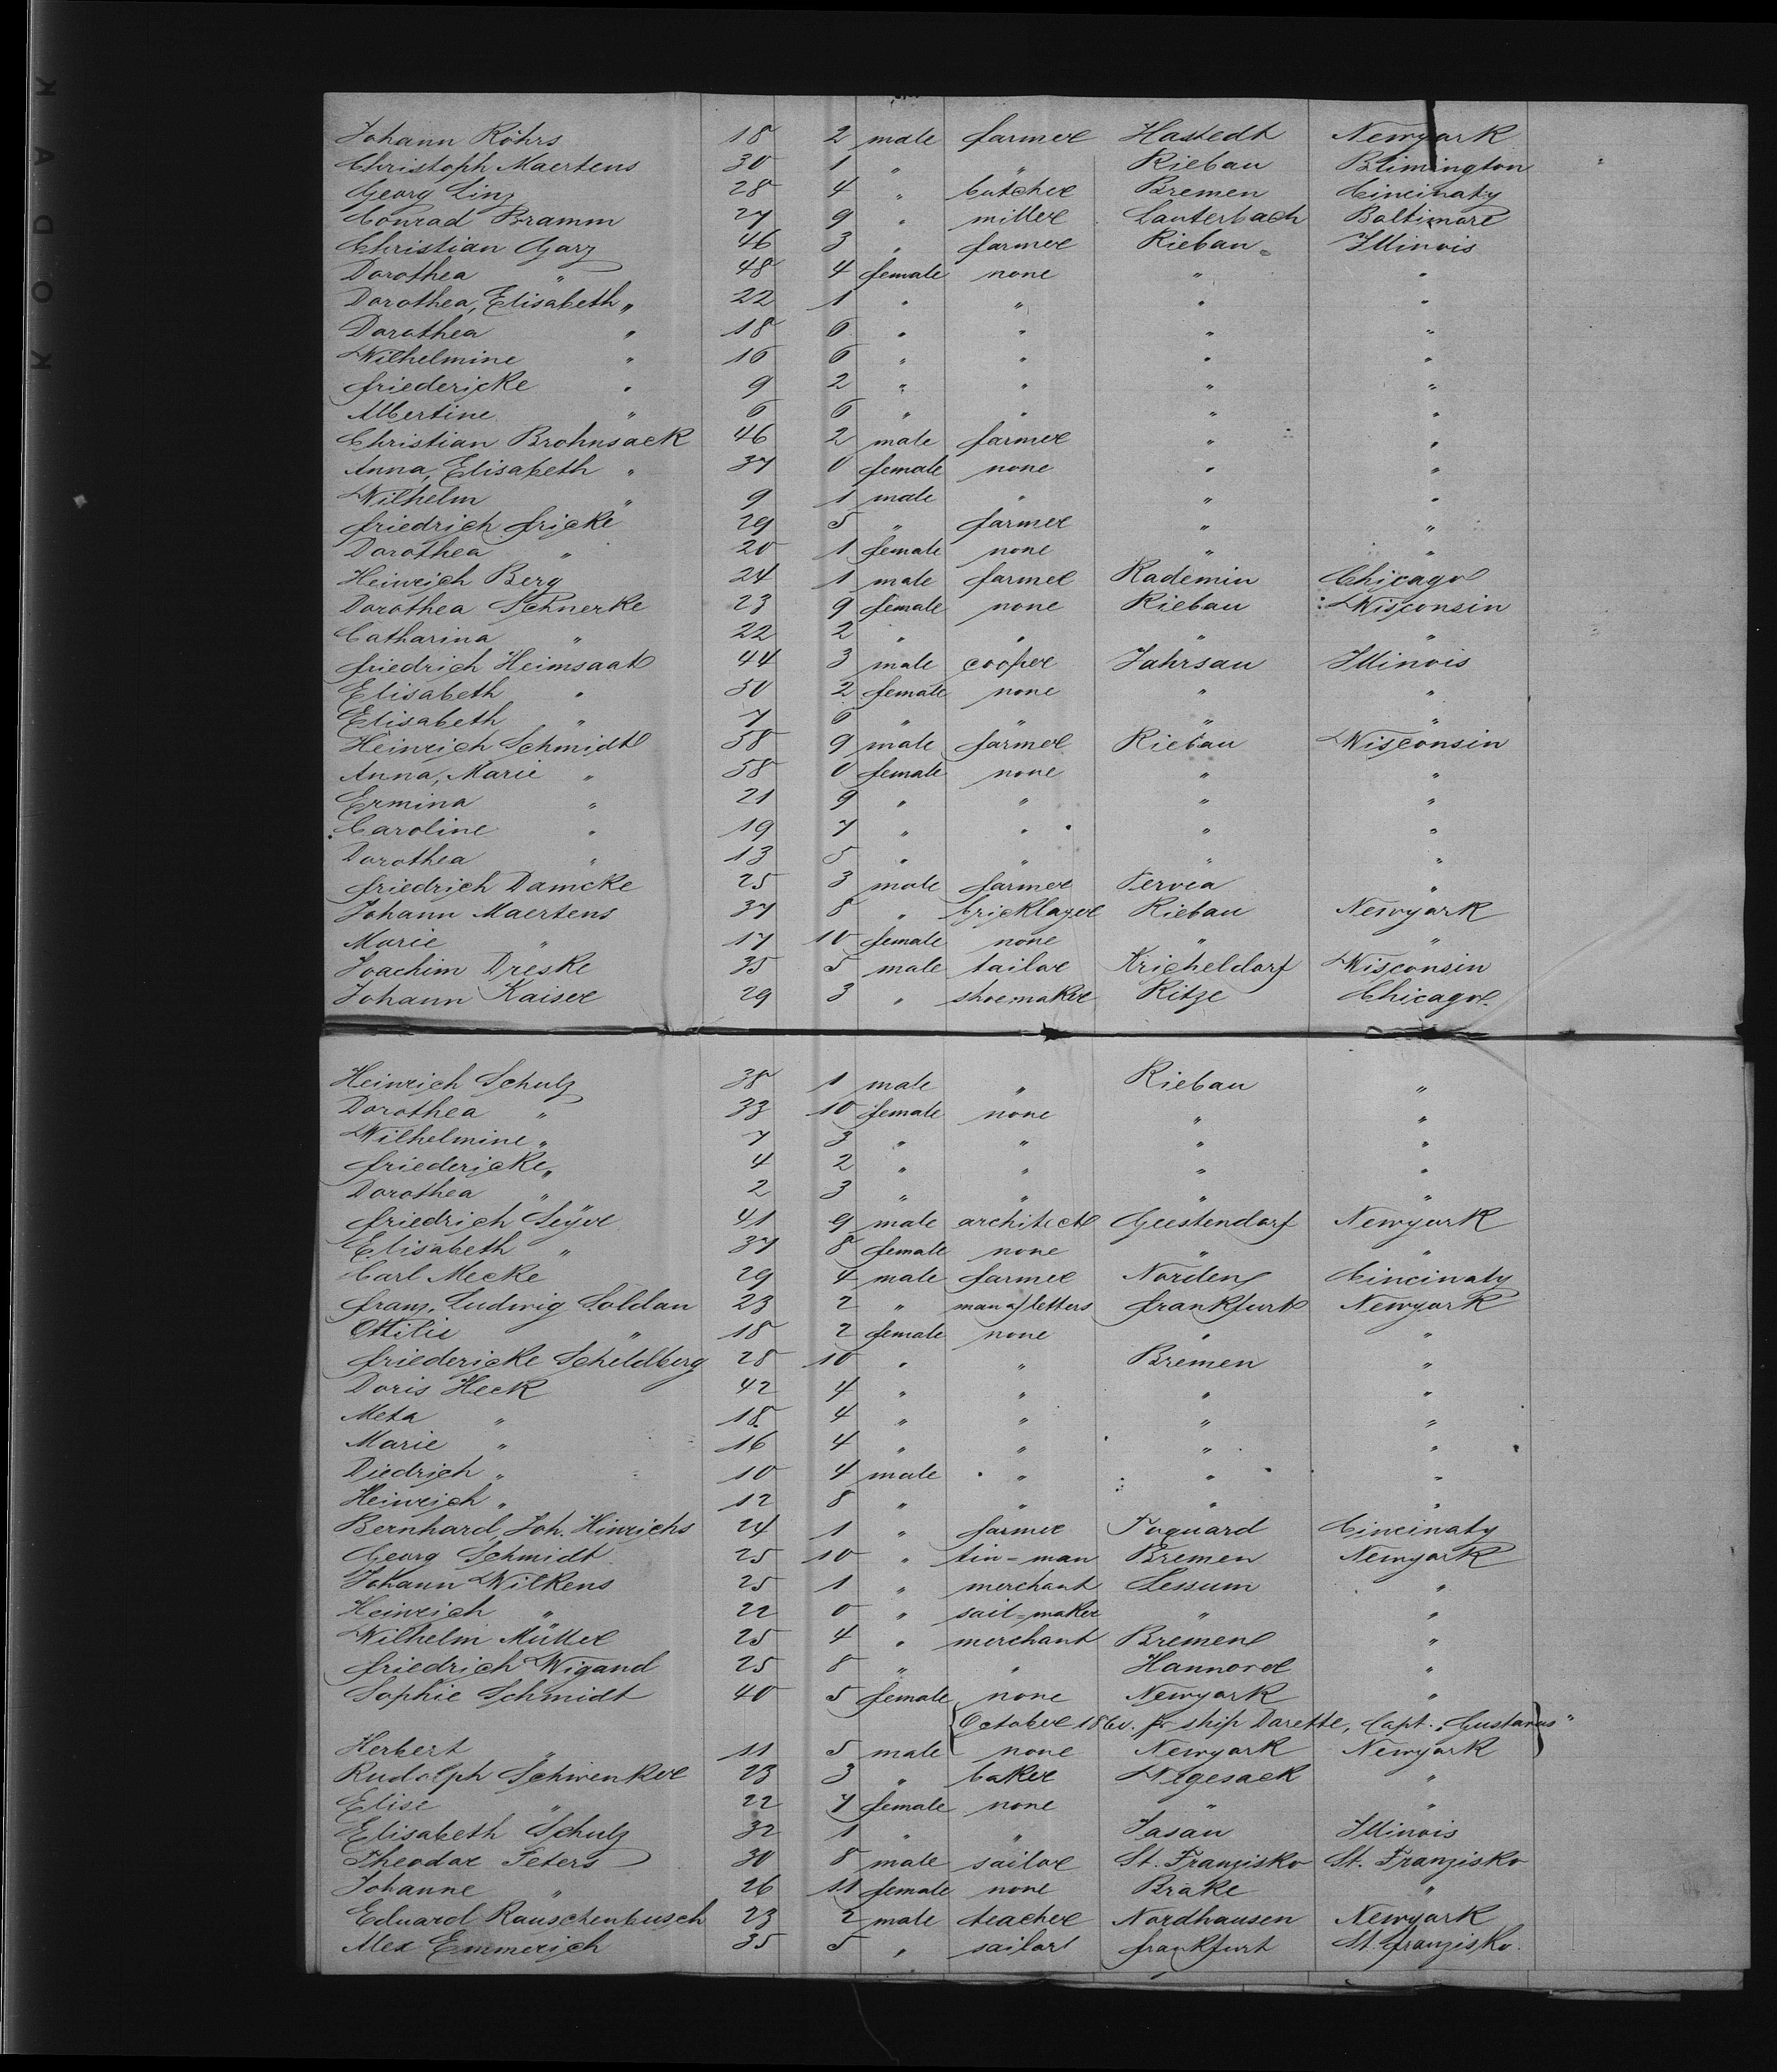 KODAK
Johann Röhrs 18 2 male farmer Hastedt Newyork
Christoph Maertens 30 1 " " Riebau Blimington
Georg Linz 28 4 " butcher Bremen Cincinaty
Conrad Bramm 27 9 " miller Lauterbach Baltimore
Christian Garz 46 3 " farmer Riebau Illinois
Dorothea " 48 4 female none " "
Dorothea, Elisabeth " 22 1 " " " "
Dorothea " 18 6 " " " "
Wilhelmine " 16 6 " " " "
Friedericke " 9 2 " " " "
Albertine " 6 6 " " " "
Christian Brohnsack 46 2 male farmer " "
Anna, Elisabeth " 37 0 female none " "
Wilhelm " 9 1 male " " "
Friedrich Fricke 29 5 " farmer " "
Dorothea " 20 1 female none " "
Heinrich Berg 24 1 male farmer Rademin Chicago
Dorothea Schnerke 23 9 female none Riebau Wisconsin
Catharina " 22 2 " " " "
Friedrich Heimsaat 44 3 male cooper Jahrsau Illinois
Elisabeth " 50 2 female none " "
Elisabeth " 7 6 " " " "
Heinrich Schmidt 58 9 male farmer Riebau Wisconsin
Anna, Marie " 58 0 female none " "
Ermina " 21 9 " " " "
Caroline " 19 7 " " " "
Dorothea " 13 5 " " " "
Friedrich Damcke 25 3 male farmer "
Johann Maertens 37 8 " bricklayer Riebau Newyork
Marie " 17 10 female none " "
Joachim Dreske 35 5 male tailor Kricheldorf Wisconsin
Johann Kaiser 29 3 " shoemaker Ritze Chicago
Heinrich Schulz 38 1 male " Riebau "
Dorothea " 33 10 female none " "
Wilhelmine " 7 3 " " " "
Friedericke " 4 2 " " " "
Dorothea " 2 3 " " " "
Friedrich 41 9 male architect Geestendorf Newyork
Elisabeth " 37 8 female none " "
Carl Mecke 29 4 male farmer Norden Cincinaty
Franz, Ludwig Soldan 23 2 " man of letters Frankfurt Newyork
Ottilie " 18 2 female none " "
Friedericke Scheldberg 28 10 " " Bremen "
Doris Heck 42 4 " " " "
Meta " 18 4 " " " "
Marie " 16 4 " " " "
Diedrich " 10 4 male " " "
Heinrich " 12 8 " " " "
Bernhard, Joh. Hinrichs 24 1 " farmer Cincinaty
Georg Schmidt 25 10 " tin=man Bremen Newyork
Johann Wilkens 25 1 " merchant Lessum "
Heinrich " 22 0 " sail=maker " "
Wilhelm Müller 25 4 " merchant Bremen "
Friedrich Wigand 25 8 " " Hannover "
Sophie Schmidt 40 5 female none Newyork "
October 1860. pr ship Dorette, Capt. "Gustavus"
Herbert " 11 5 male none Newyork Newyork
Rudolph Schwenker 23 3 " baker Vegesack "
Elise " 22 7 female none " "
Elisabeth Schulz 32 1 " " Jasau Illinois
Theodor Peters 30 8 male sailor St. Franzisko St. Franzisko
Johanne " 26 11 female none Brake "
Eduard Rauschenbusch 23 2 male teacher Nordhausen Newyork
Alex Emmerich 35 5 " sailor Frankfurt St. Franzisko.